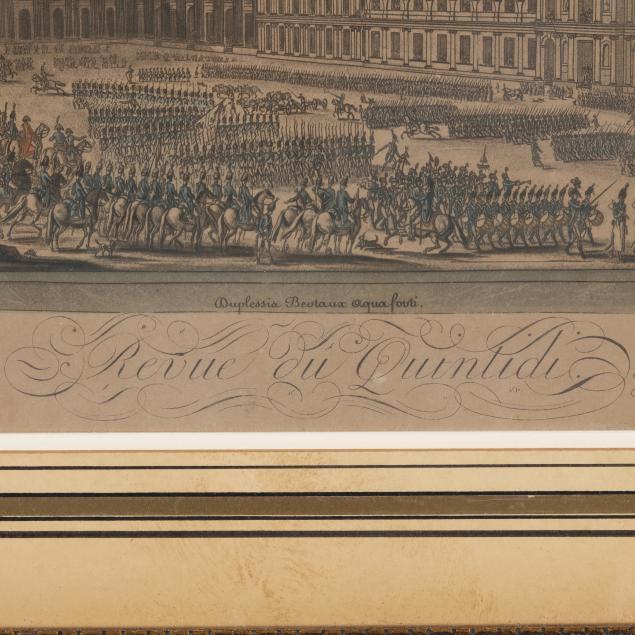 Duplessia Bertaux aqua forti.
Revue du Quintidi.